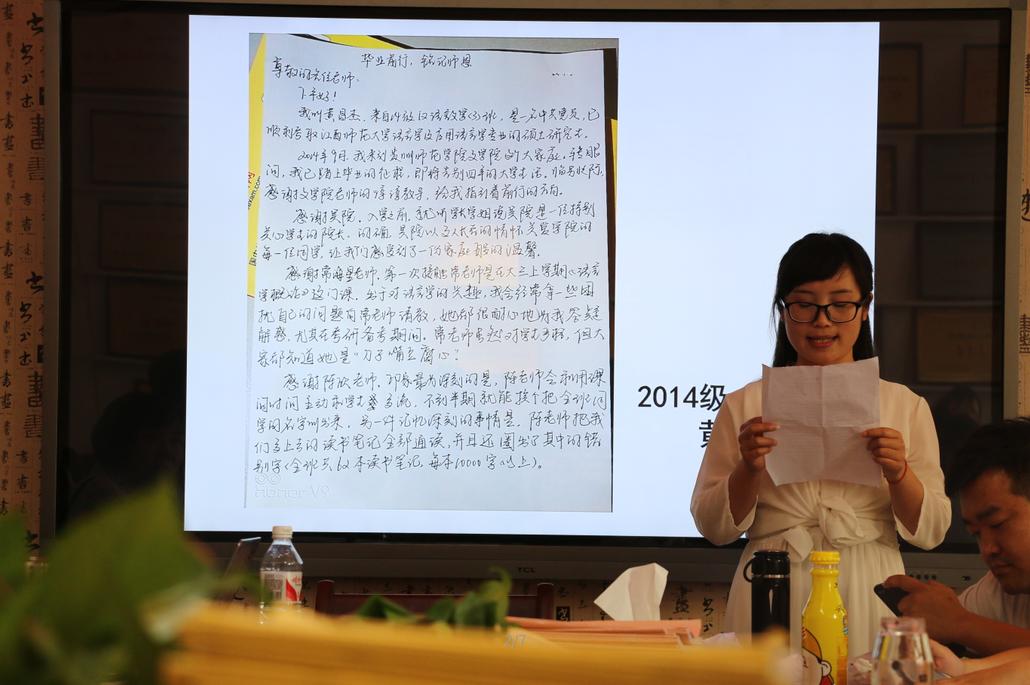 毕业前行，铭记师恩
尊敬的各位老师：
下午好！
我叫黄昌丞，来自14级汉语言文学(3)班，是一名中共党员，已
顺利考取江西师范大学语言学及应用语言学专业的硕士研究生。
2014年9月，我来到贵州师范学院文学院的大家庭，转眼
间，我已踏上毕业的征程，即将告别四年的大学生活。临别状态，
感谢文学院老师的谆谆教导，给我指引着前行的方向。
感谢吴院。入学之前，就听学长学姐说吴院是一位特别
关心学生的院长。的确，吴院以
的情怀关爱学院的
每一位同学，让我们感受到了一份家庭般的温馨。
感谢常海星老师，第一次接触常老师是在大三上学期《语言
学概论》这门课。出于对语言学的兴趣，我会经常拿一些困
扰自己的问题向常老师请教，她都很耐心地为我答疑
解惑，尤其在考研备考期间。常老师虽然对学生严格，但大
家都知道她是“刀子嘴豆腐心”！
感谢陈欣老师，印象最为深刻的是，陈老师会利用课
间时间主动和学生交流，不到半期就能挨个把全班同
学的名字叫出来。另一件记忆深刻的事情是，陈老师把我
们交上去的读书笔记全部通读，并且还圈出了其中的错
别字（全班共62本读书笔记，每本10000字以上）。
HONOR V9
2014级
黄
TCL